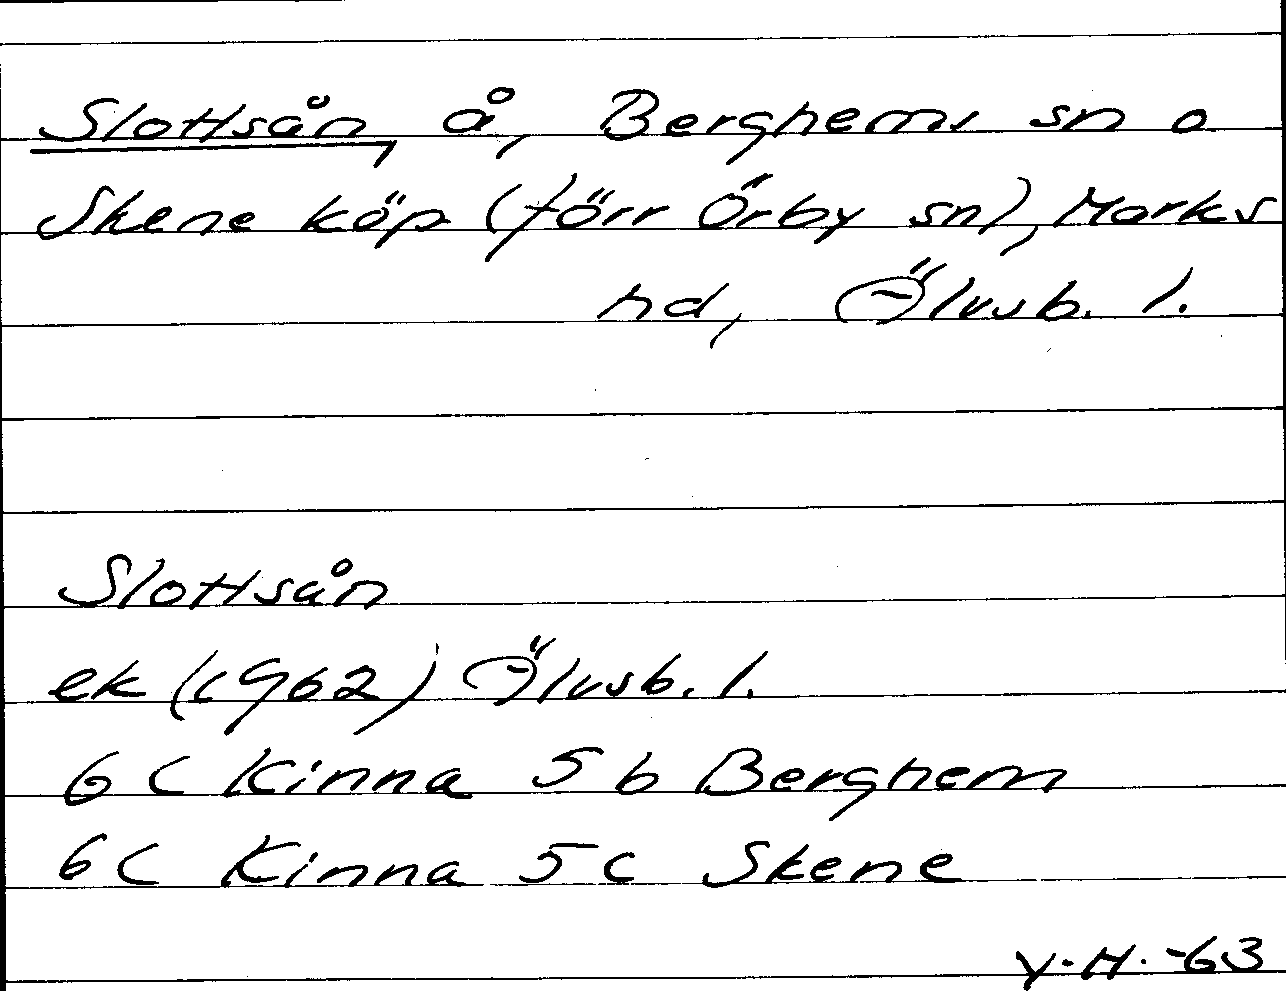 Slottsån, å, Berghems sn o
Skene köp (förr Örby sn), Marks
hd, Älvsb. l.
Slottsån
ek (1962) Älvsb. l.
6 C Kinna 5 b Berghem
6 C Kinna 5 c Skene
Y.H. -63